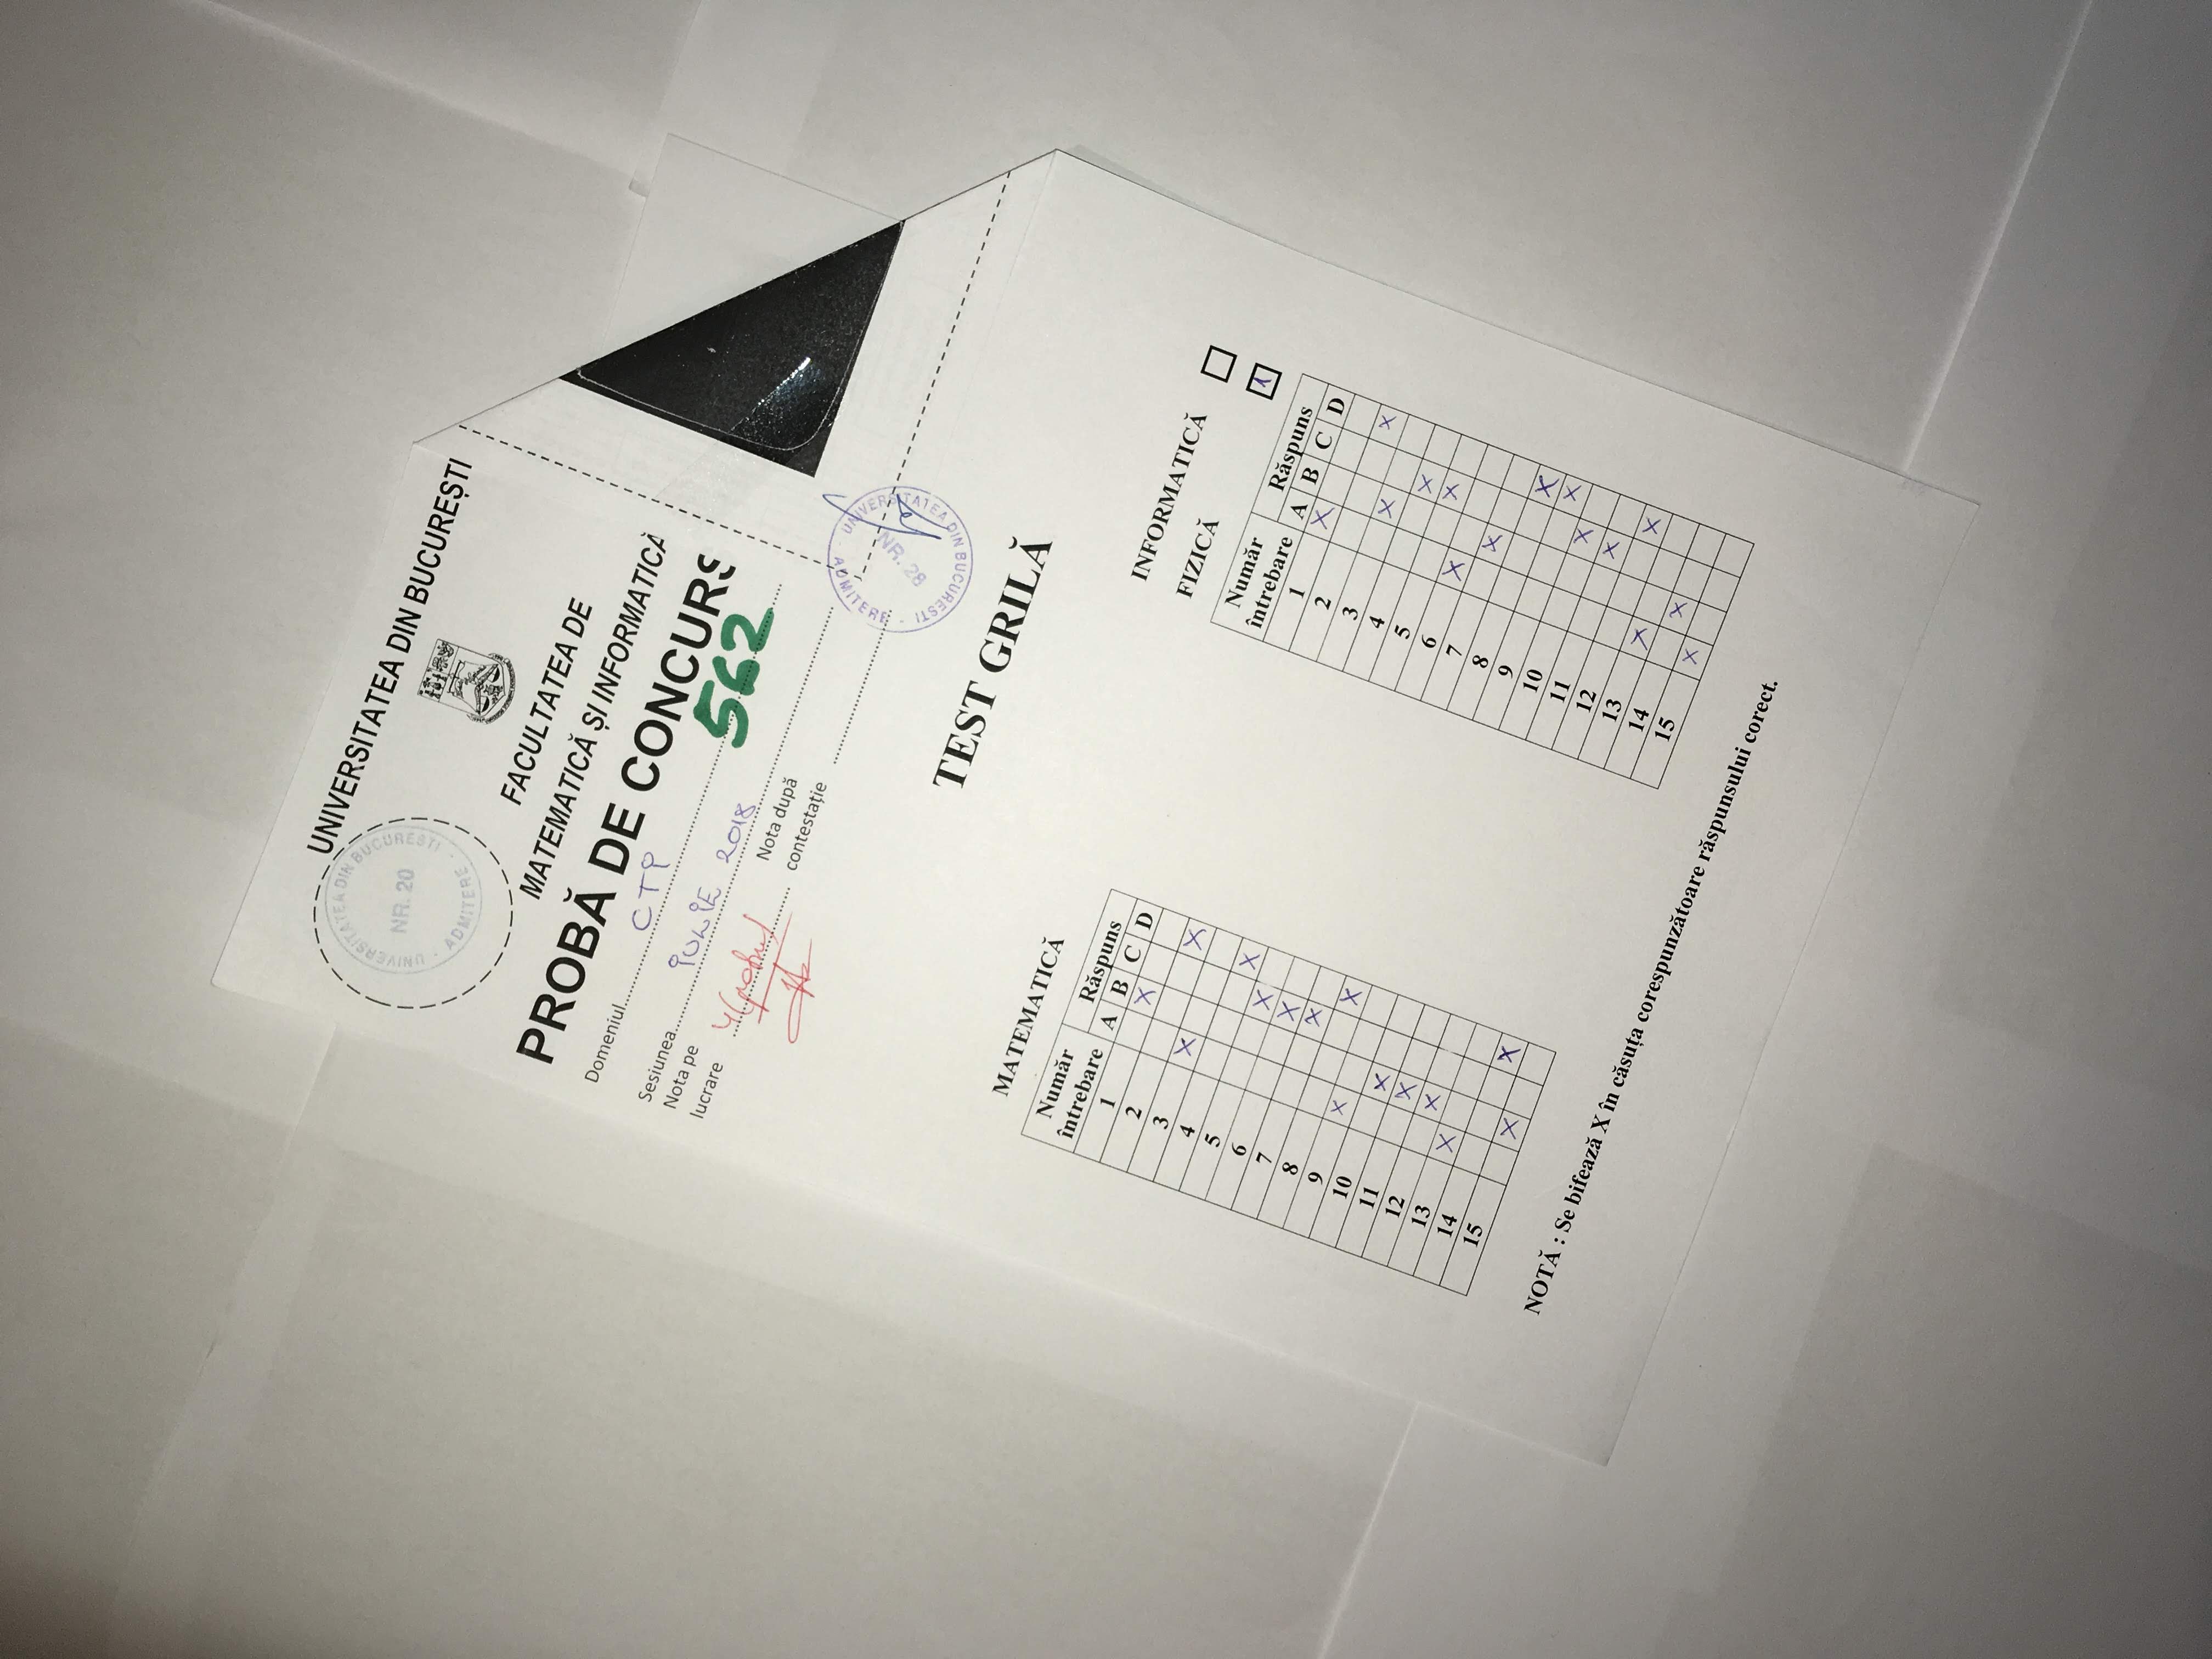 UNIVERSITATEA DIN BUCUREȘTI
UNIVERSITATEA DIN BUCURESTI · ADMITERE ·
NR. 20
FACULTATEA DE
MATEMATICĂ ȘI INFORMATICĂ
PROBĂ DE CONCURS
Domeniul CTI
562
Sesiunea IULIE 2018
Nota pe lucrare 4 (patru)
Nota după contestație
UNIVERSITATEA DIN BUCURESTI · ADMITERE ·
NR. 28
TEST GRILĂ
MATEMATICĂ
Număr întrebare Răspuns
A B C D
1 X
2 X
3 X
4 X
5 X
6 X
7 X
8 X
9 X
10 X
11 X
12 X
13 X
14 X
15 X
INFORMATICĂ
FIZICĂ X
Număr întrebare Răspuns
A B C D
1 X
2 X
3 X
4 X
5 X
6 X
7 X
8 X
9 X
10 X
11 X
12 X
13 X
14 X
15 X
NOTĂ : Se bifează X în căsuța corespunzătoare răspunsului corect.